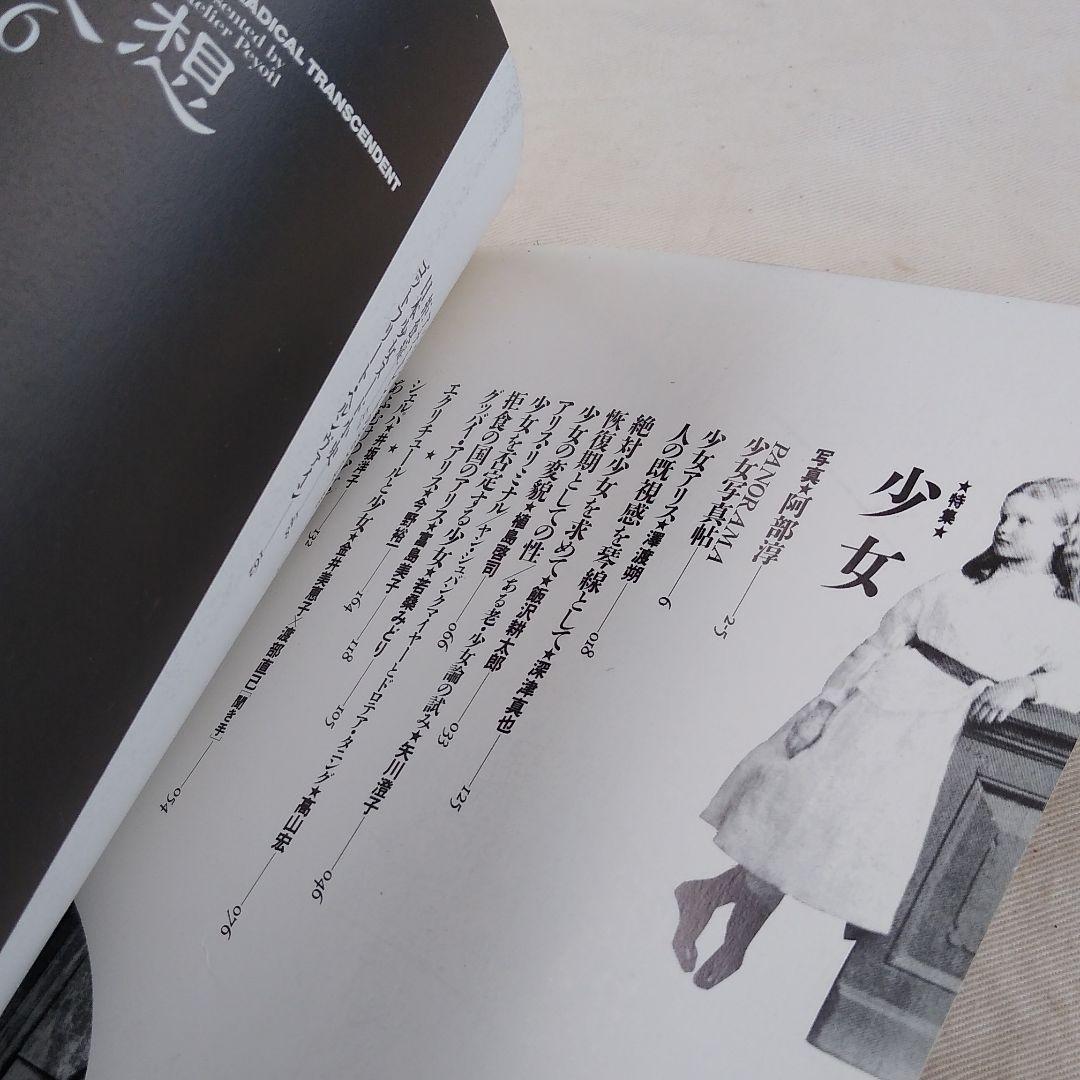 RADICAL TRANSCENDENT
Presented by
Atelier Peyotl
想
へ
6
★特集★
少女
写真★阿部淳
PANORAMA
少女写真帖
2-5
少女アリス★澤渡朔
6
人の既視感を琴線として★深津真也
絶対少女
018
恢復期としての性／ある老・少女論の試み★矢川澄子
少女を求めて★飯沢耕太郎
アリスの変貌★植島啓司
033
125
アリス・リミナル／ヤン・シュバンクマイヤーとドロテア・タニング★高山宏
066
046
少女を否定する少女★若桑みどり
拒食の国のアリス★富島美子
グッバイ・アリス★今野裕一
105
118
164
076
エクリチュールと少女★金井美恵子×渡部直己［聞き手］
054
シェルパ★井坂洋子
132